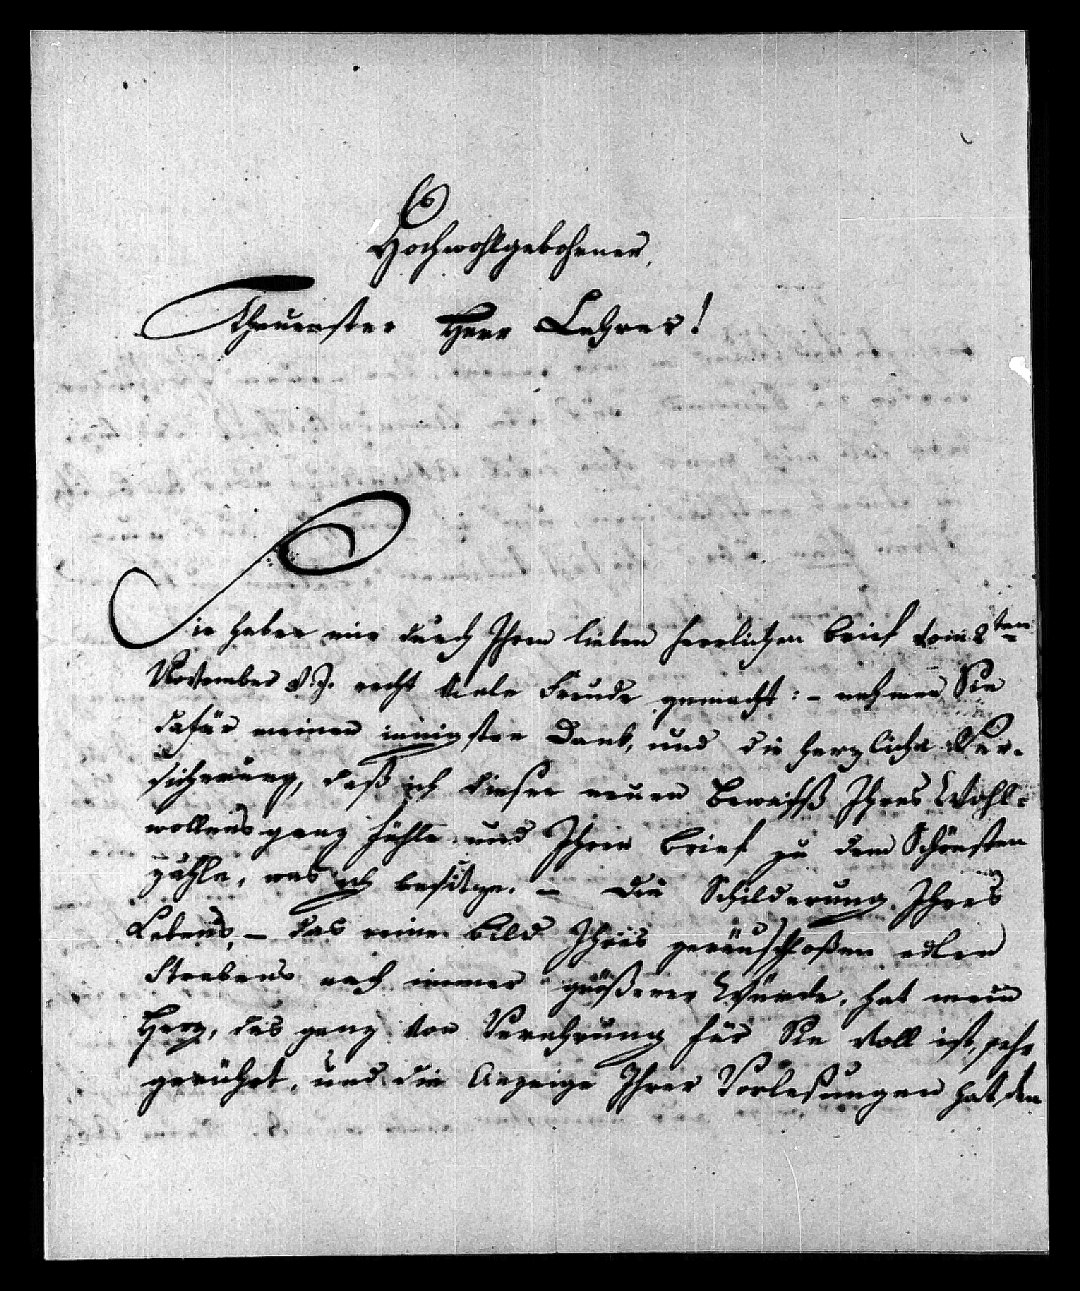 Hochwohlgebohrner,
Theuerster Herr Lehrer!
Sie haben mir durch Ihren lieben herrlichen Brief vom 8ten
November d. J. recht viele Freude gemacht: – nehmen Sie
dafür meinen innigsten Dank, und die herzliche Ver-
sicherung, daß ich diesen neuen Beweiß Ihres Wohl-
wollens ganz fühle und Ihren Brief zu dem Schönsten
zähle, was ich besitze. – Die Schilderung Ihres
Lebens, – das reine Bild Ihres geräuschloßen edlen
Strebens nach immer größerer Würde, hat mein
Herz, das ganz von Verehrung für Sie voll ist, sehr
gerührt, und die Anzeige Ihrer Vorlesungen hat den